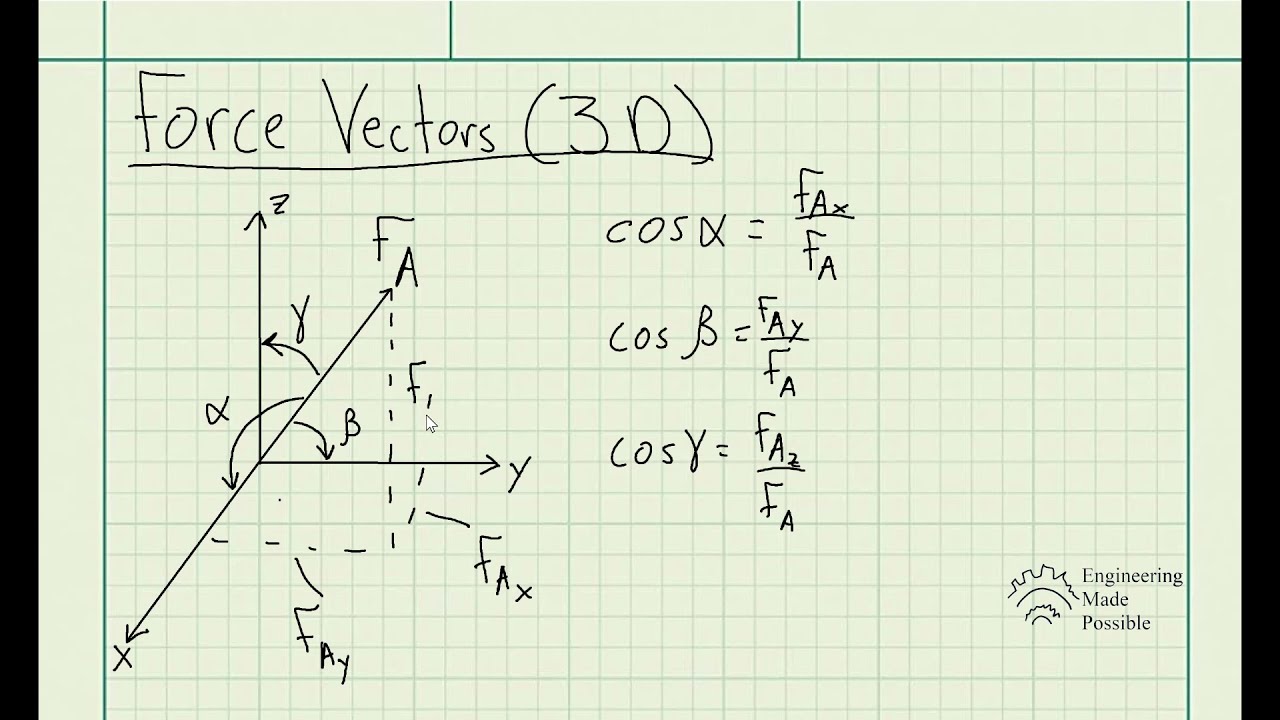 Force Vectors (3D)
z
F_A
γ
α
β
F_1
y
F_Ax
F_Ay
x
cos α = F_Ax / F_A
cos β = F_Ay / F_A
cos γ = F_Az / F_A
Engineering
Made
Possible